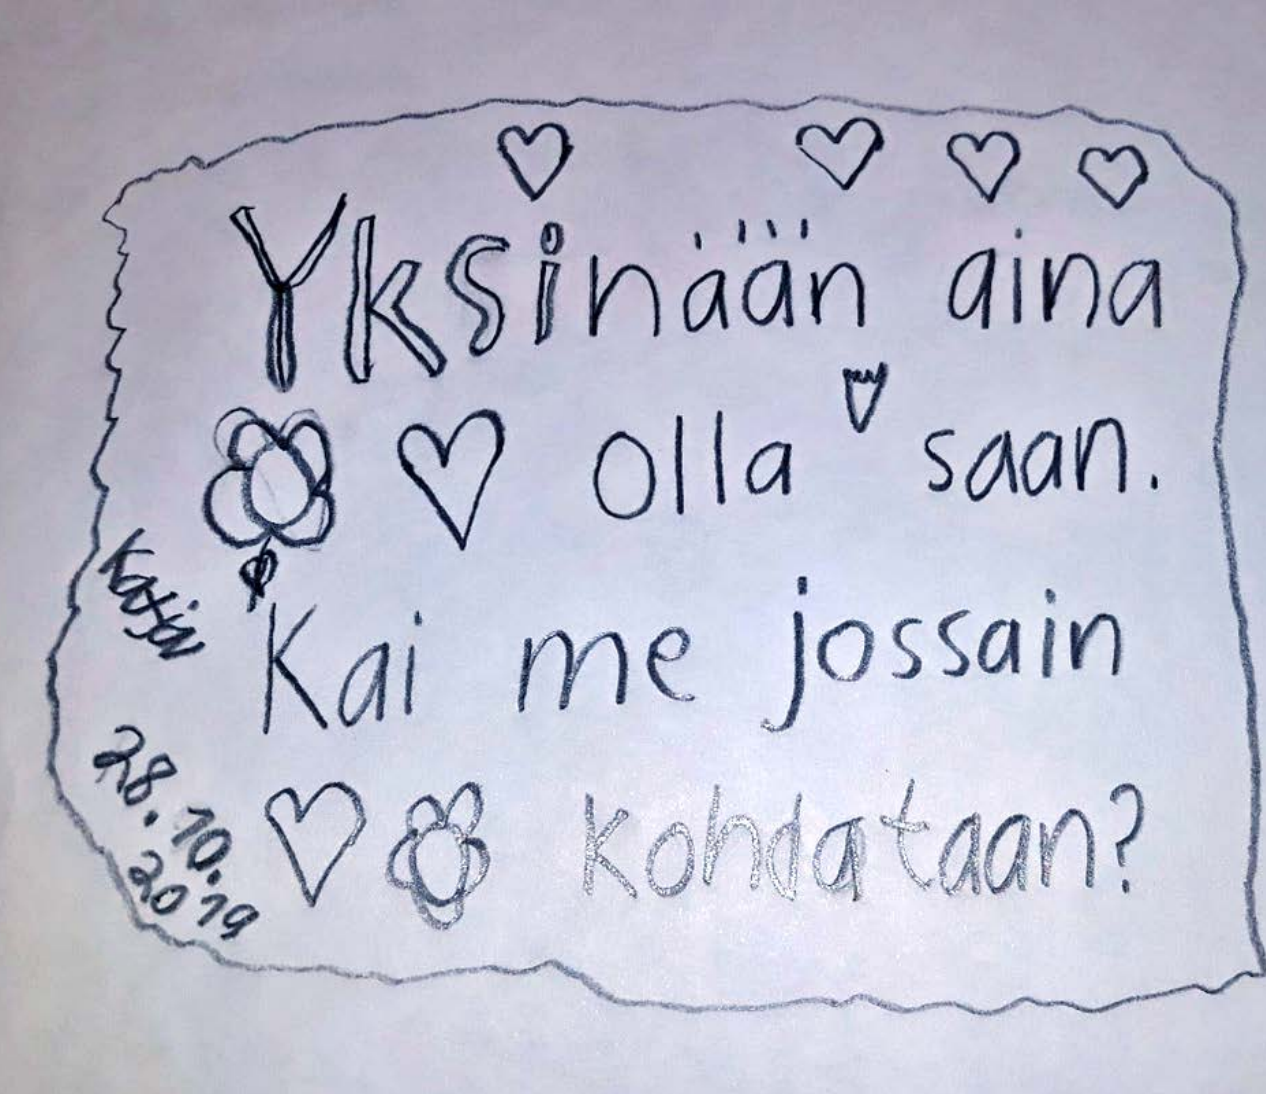 Yksinään aina
olla saan.
Kai me jossain
kohdataan?
Katja
28.10.
2019